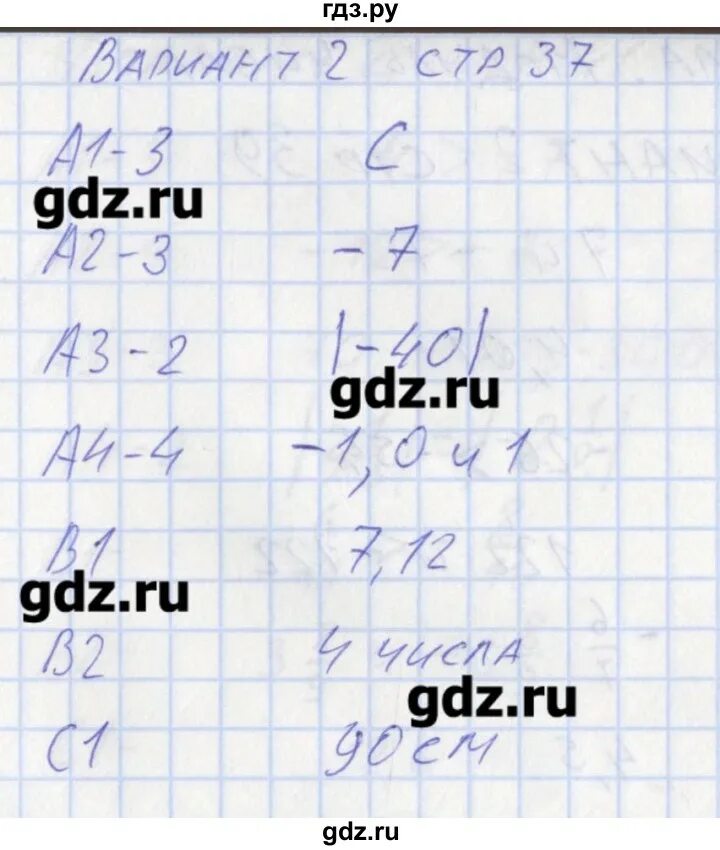 гдз.ру
ВАРИАНТ 2 СТР 37
А1-3 С
gdz.ru
А2-3 -7
А3-2 |-40|
gdz.ru
А4-4 -1, 0 и 1
В1 7,12
gdz.ru
В2 4 числа
gdz.ru
С1 90 см
gdz.ru